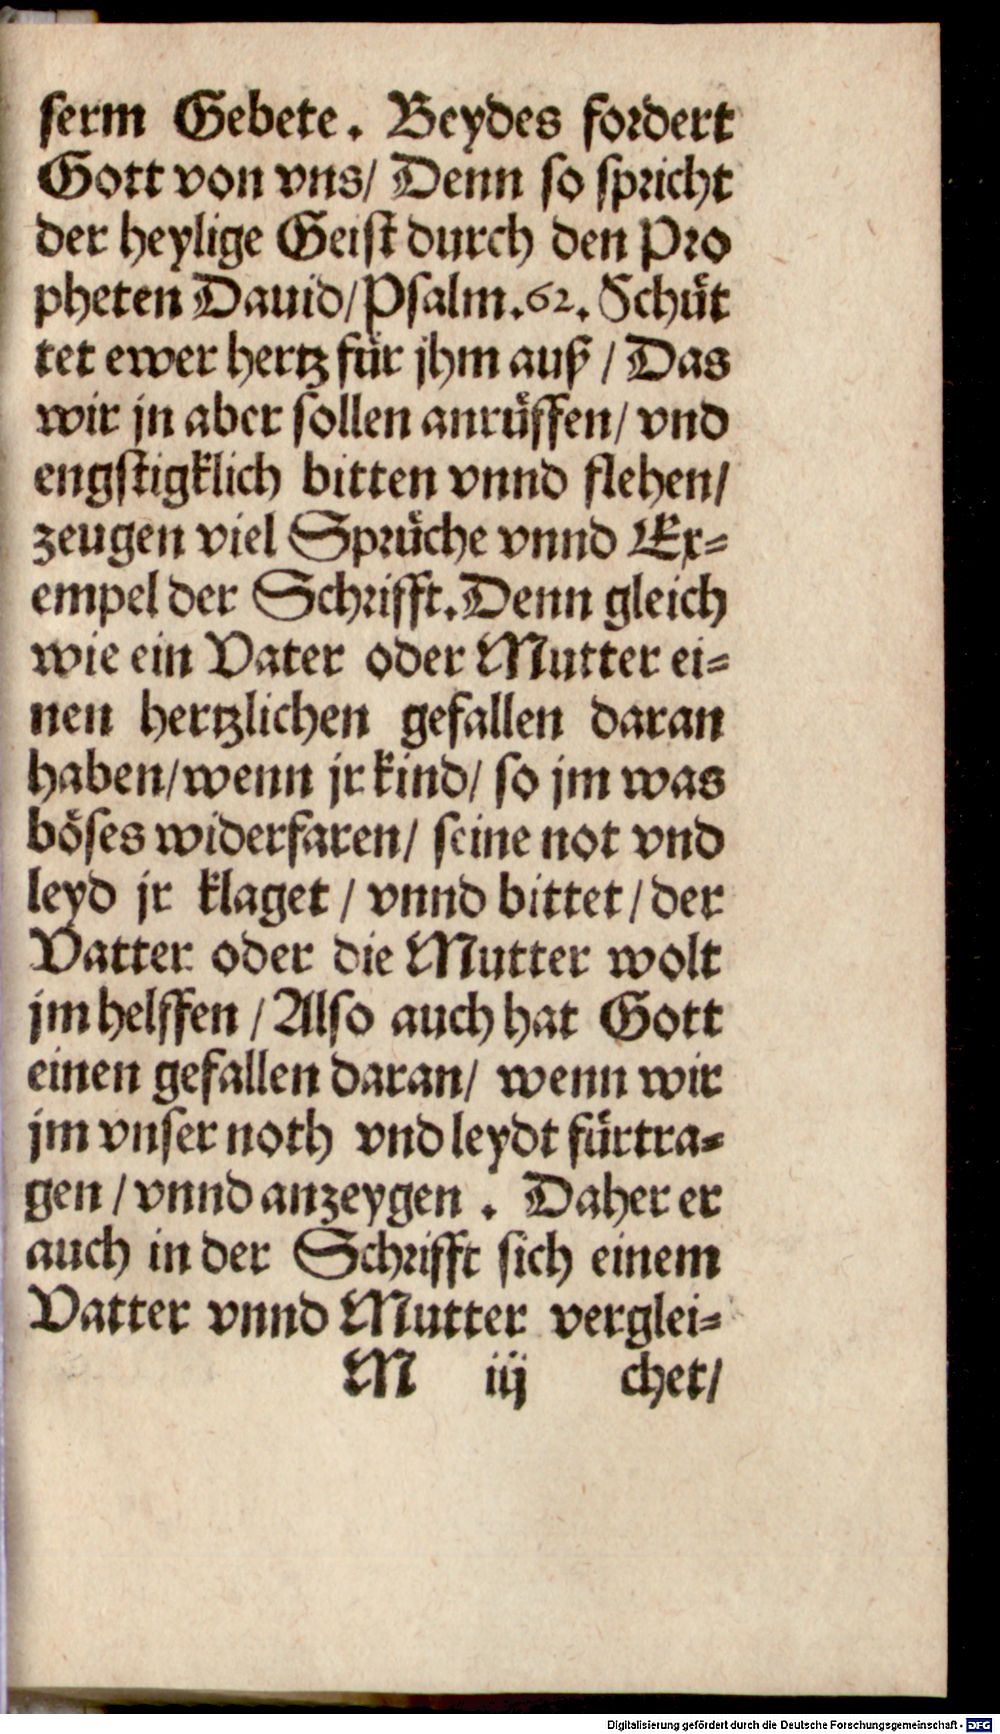 serm Gebete. Beydes fordert
Gott von vns/ Denn so spricht
der heylige Geist durch den Pro
pheten Dauid/Psalm.62. Schüt
tet ewer hertz für jhm auß / Das
wir jn aber sollen anrüffen/ vnd
engstigklich bitten vnnd flehen/
zeugen viel Sprüche vnnd Ex-
empel der Schrifft. Denn gleich
wie ein Vater oder Mutter ei-
nen hertzlichen gefallen daran
haben/wenn jr kind/ so jm was
böses widerfaren/ seine not vnd
leyd jr klaget / vnnd bittet/ der
Vatter oder die Mutter wolt
jm helffen / Also auch hat Gott
einen gefallen daran/ wenn wir
jm vnser noth vnd leydt fürtra-
gen / vnnd anzeygen . Daher er
auch in der Schrifft sich einem
Vatter vnnd Mutter verglei-
M iij chet/
Digitalisierung gefördert durch die Deutsche Forschungsgemeinschaft - DFG